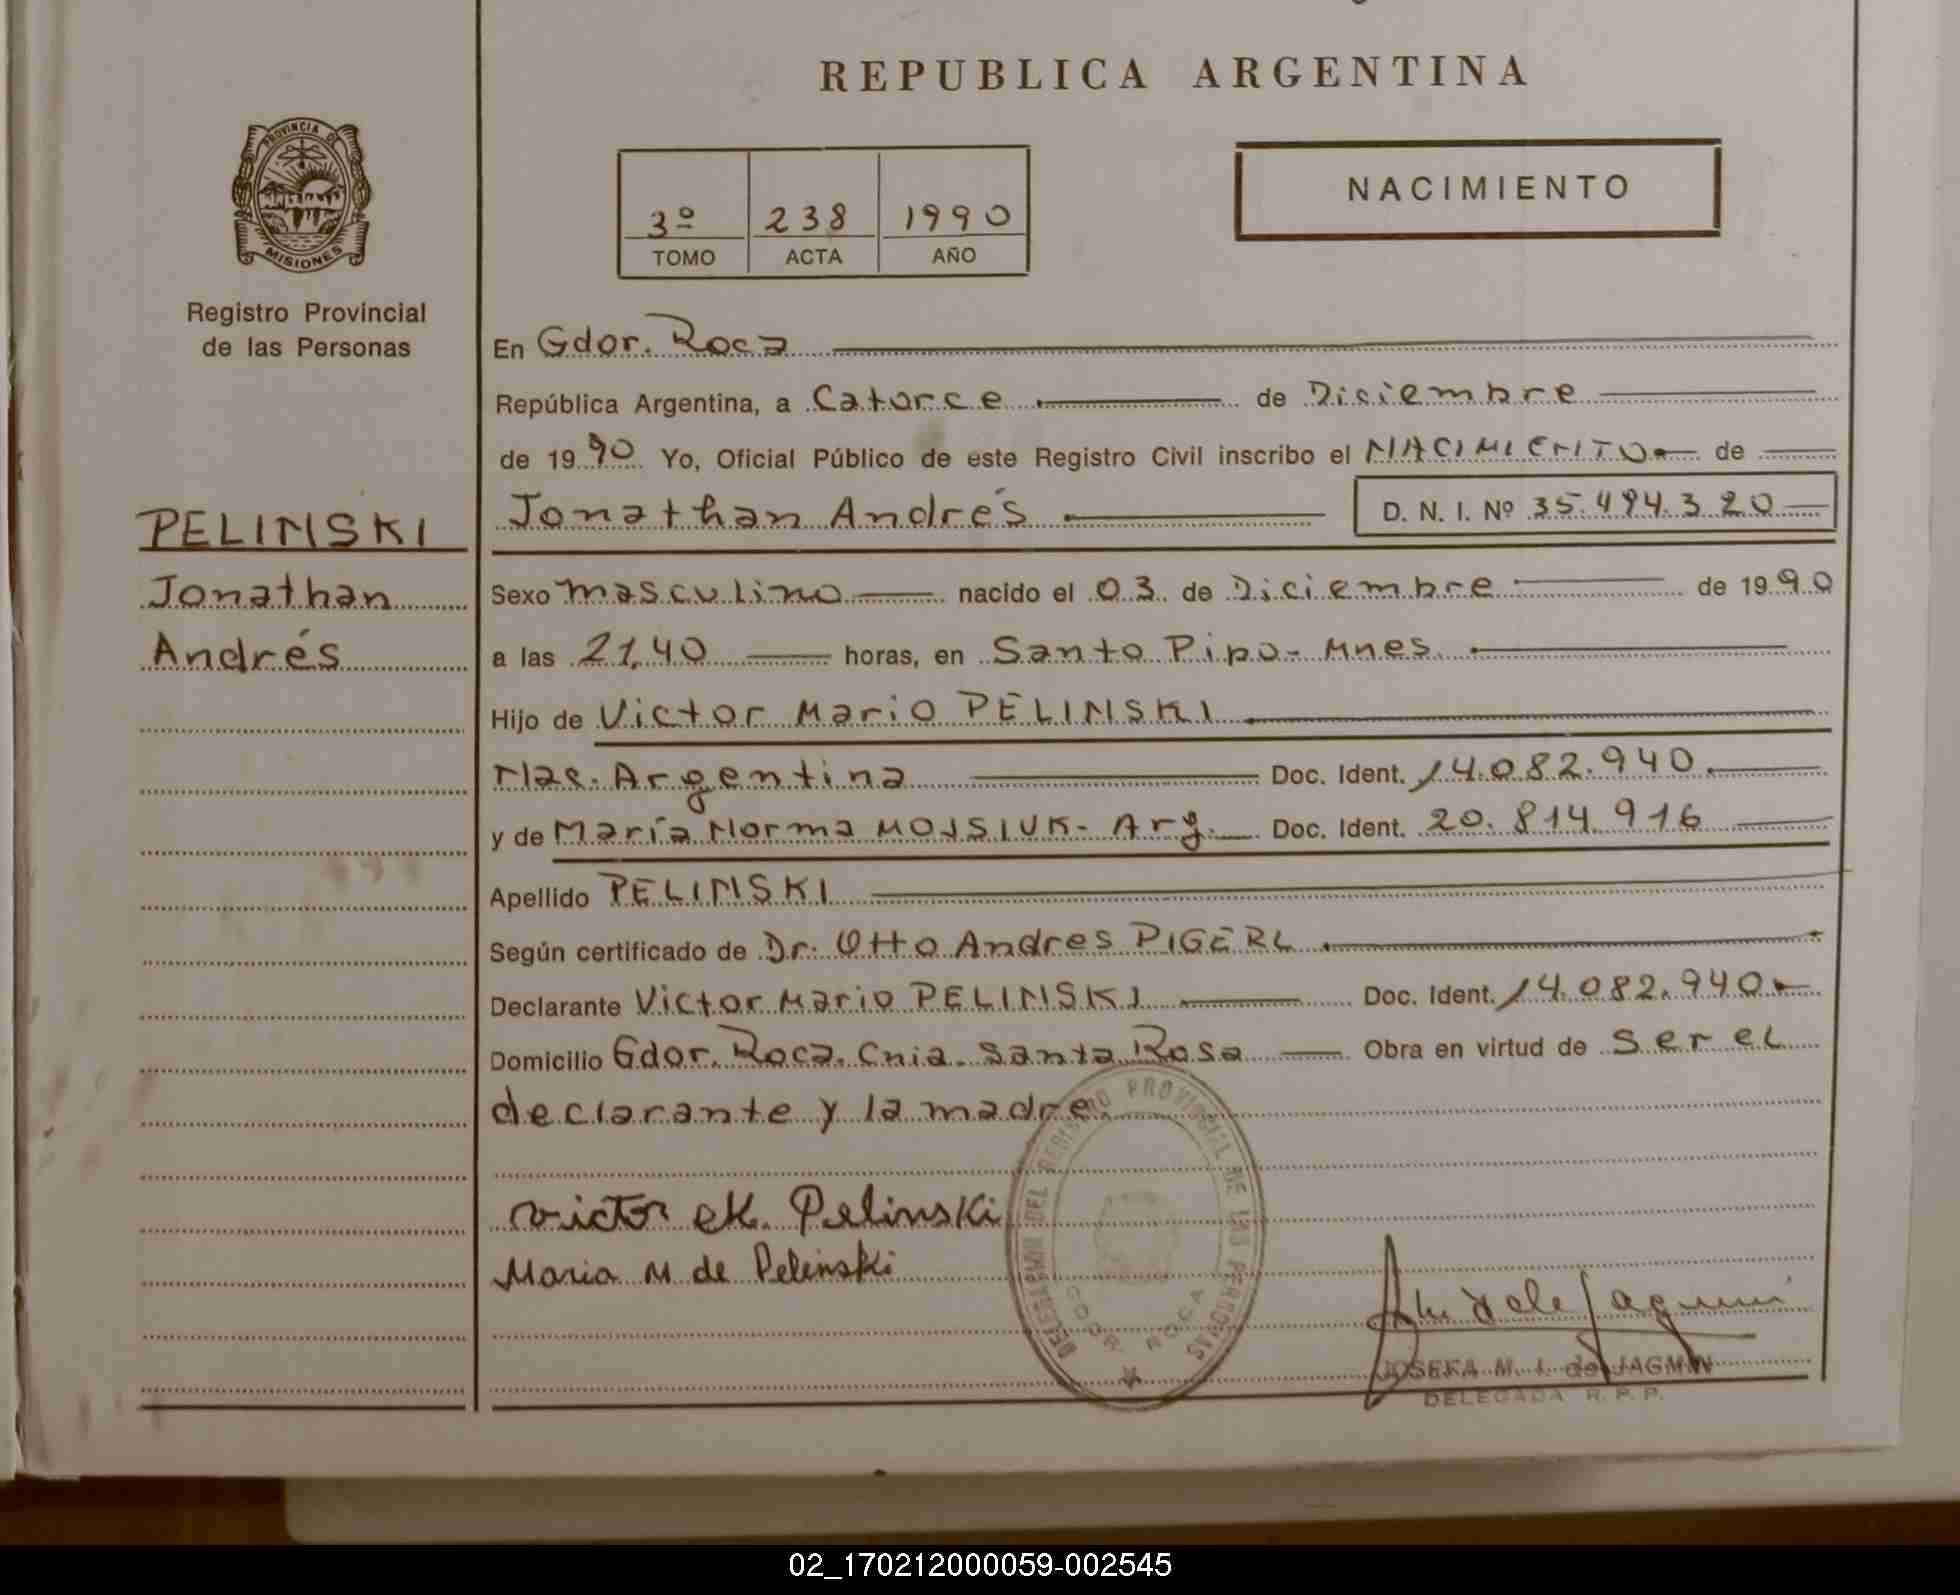 REPUBLICA ARGENTINA
PROVINCIA DE
MISIONES
Registro Provincial
de las Personas
3º 238 1990
TOMO ACTA AÑO
NACIMIENTO
En Gdor. Roca
República Argentina, a Catorce de Diciembre
de 1990 Yo, Oficial Público de este Registro Civil inscribo el NACIMIENTO de
Jonathan Andrés D. N. I. Nº 35.494.320
PELINSKI
Jonathan
Andrés
Sexo masculino nacido el 03 de Diciembre de 1990
a las 21,40 horas, en Santo Pipo - Mnes
Hijo de Victor Mario PELINSKI
Nac. Argentina Doc. Ident. 14.082.940
y de María Norma MOJSIUK - Arg. Doc. Ident. 20.814.916
Apellido PELINSKI
Según certificado de Dr. Otto Andres PIGERL
Declarante Victor Mario PELINSKI Doc. Ident. 14.082.940
Domicilio Gdor. Roca. Cnia. Santa Rosa Obra en virtud de ser el
declarante y la madre
victor M. Pelinski
Maria M de Pelinski
DELEGACION DEL REGISTRO PROVINCIAL DE LAS PERSONAS
GDOR. ROCA
JOSEFA M. I. de JAGMIN
DELEGADA R. P. P.
02_170212000059-002545